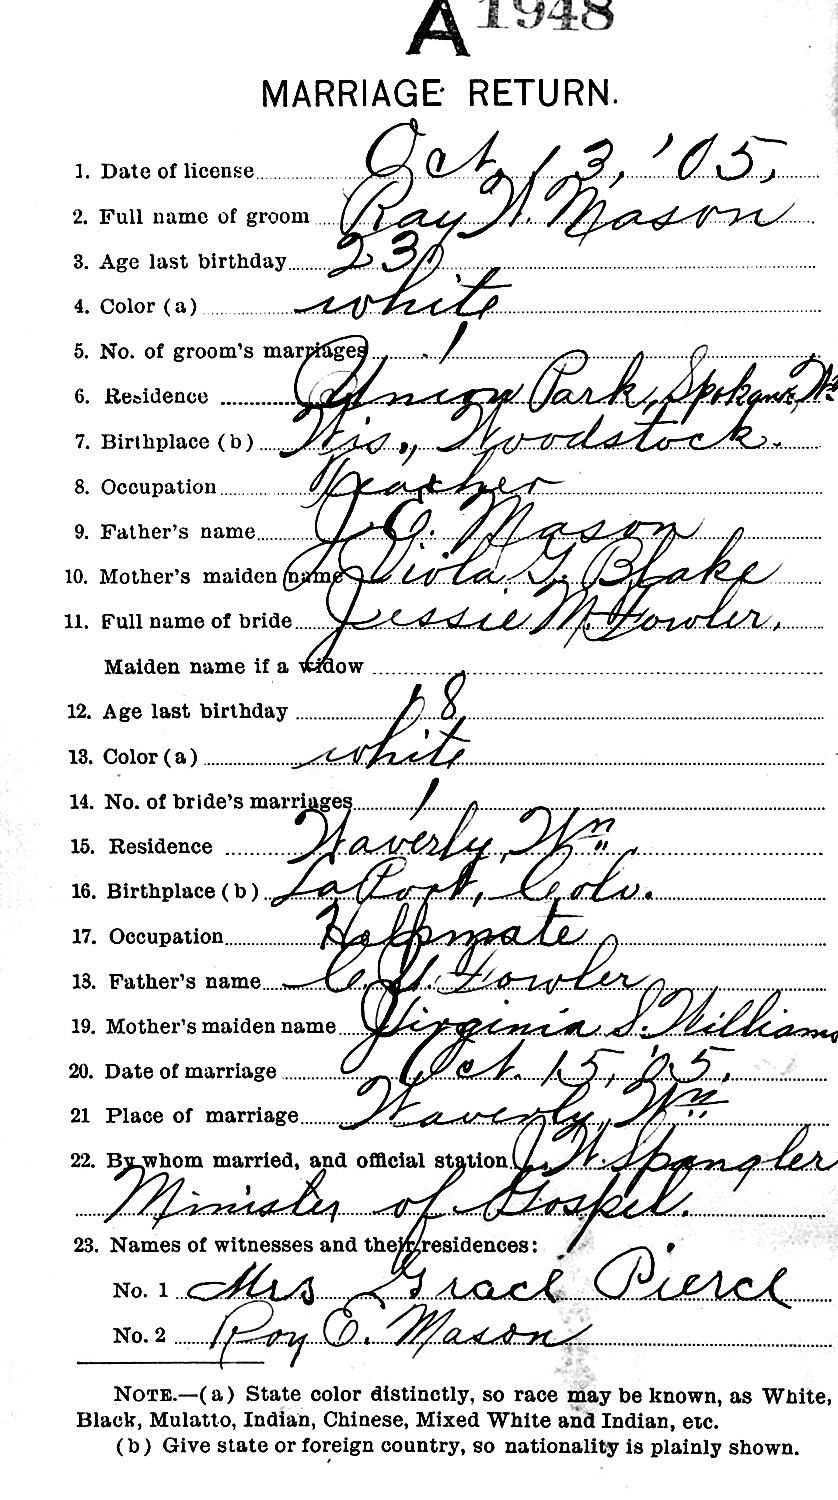 A 1948
MARRIAGE RETURN.
1. Date of license Oct. 13, '05,
2. Full name of groom Ray W. Mason
3. Age last birthday 23
4. Color (a) white
5. No. of groom's marriages 1
6. Residence Union Park, Spokane, Wn
7. Birthplace (b) Wis., Woodstock.
8. Occupation Teacher
9. Father's name J. E. Mason
10. Mother's maiden name Viola G. Blake
11. Full name of bride Jessie M. Fowler,
Maiden name if a widow
12. Age last birthday 18
13. Color (a) white
14. No. of bride's marriages 1
15. Residence Waverly, Wn.
16. Birthplace (b) LaPort, Colo.
17. Occupation Helpmate
18. Father's name C. H. Fowler
19. Mother's maiden name Virginia S. Williams
20. Date of marriage Oct. 15, '05,
21 Place of marriage Waverly, Wn
22. By whom married, and official station J. W. Spangler
Minister of Gospel.
23. Names of witnesses and their residences:
No. 1 Mrs Grace Pierce
No. 2 Roy E. Mason
NOTE.—(a) State color distinctly, so race may be known, as White,
Black, Mulatto, Indian, Chinese, Mixed White and Indian, etc.
(b) Give state or foreign country, so nationality is plainly shown.